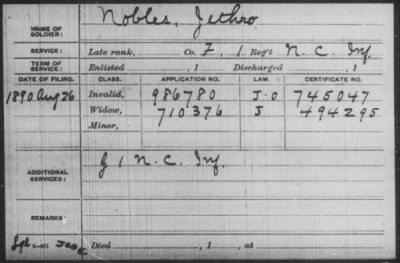 Nobles, Jethro
NAME OF SOLDIER:
SERVICE: Late rank, Co. F, 1 Reg't N. C. Inf.
TERM OF SERVICE: Enlisted , 1 Discharged , 1
DATE OF FILING. CLASS. APPLICATION NO. LAW. CERTIFICATE NO.
1890 Aug 26 Invalid, 986780 J.O 745047
Widow, 710376 J 494295
Minor,
ADDITIONAL SERVICES: G 1 N. C. Inf.
REMARKS:
Died , 1 , at